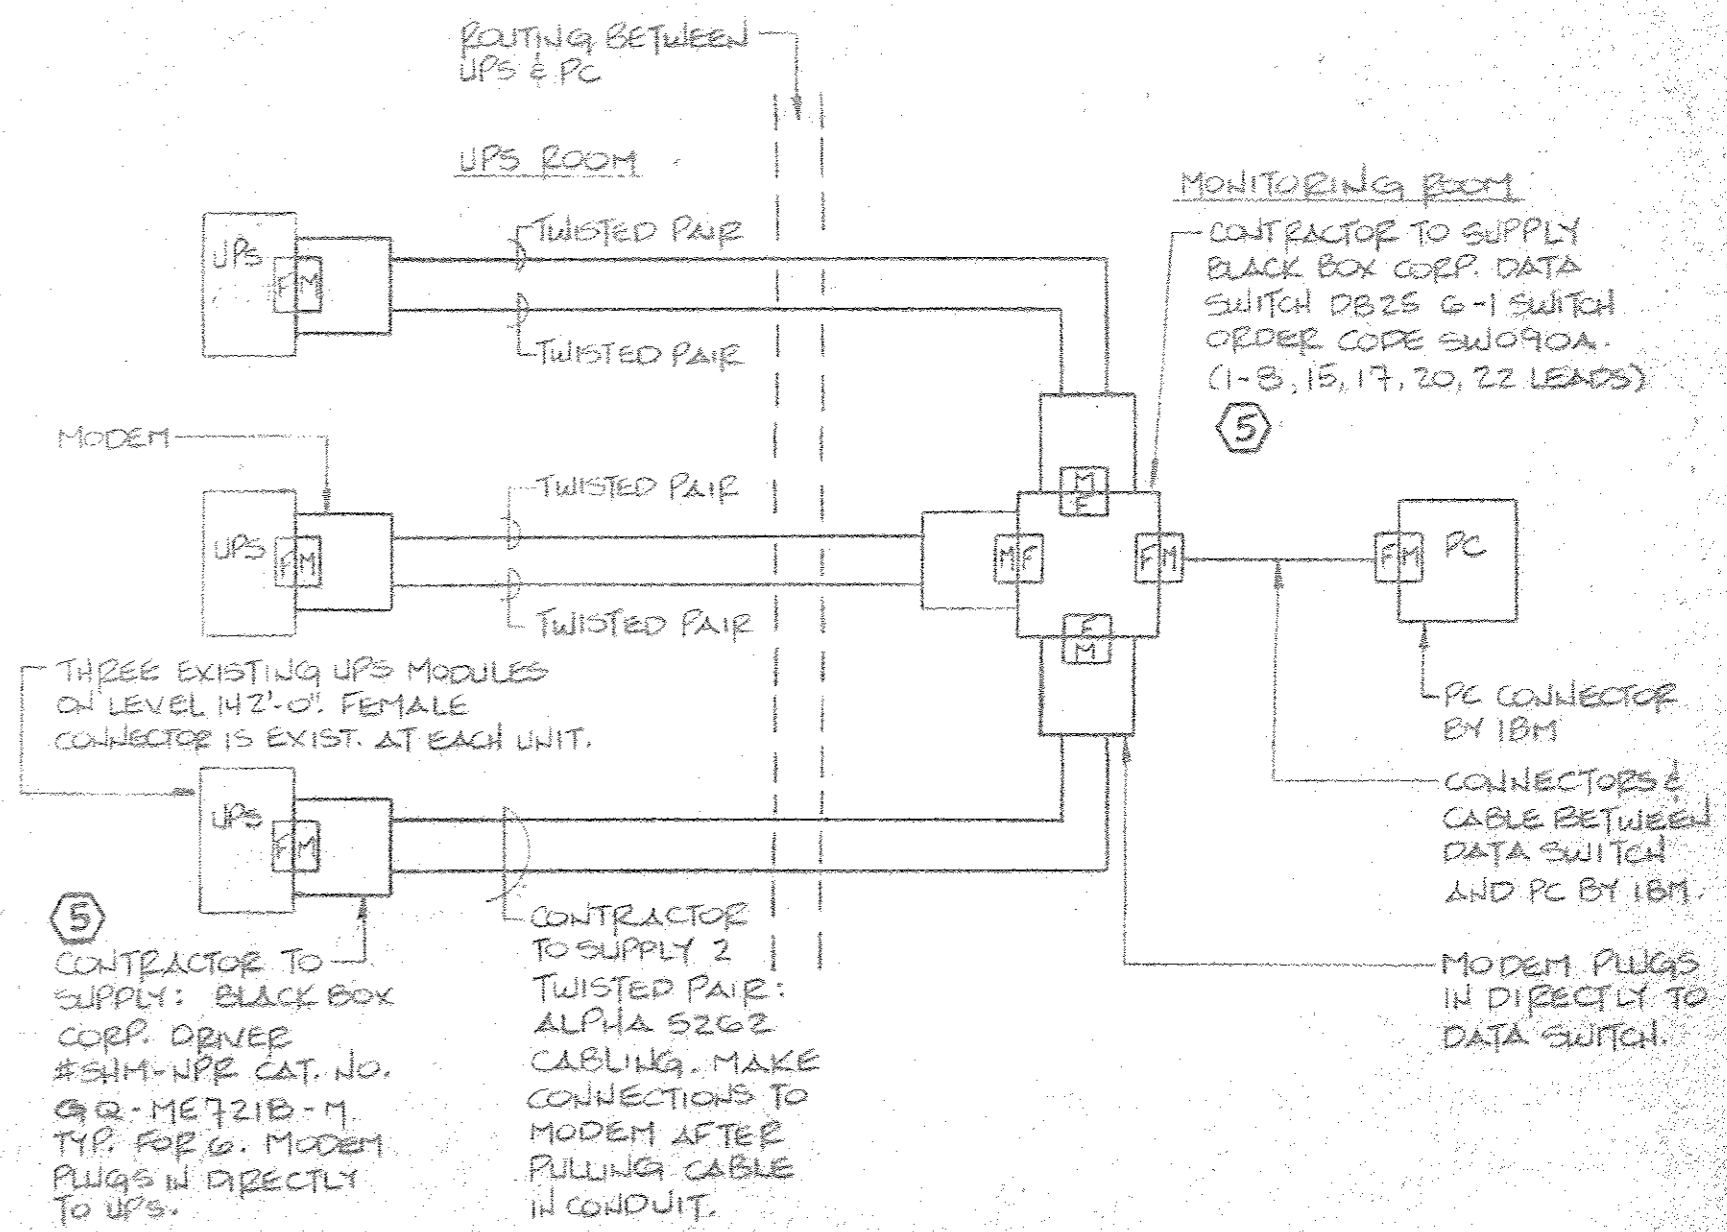 ROUTING BETWEEN
UPS & PC
UPS ROOM
MONITORING ROOM
CONTRACTOR TO SUPPLY
BLACK BOX CORP. DATA
SWITCH DB25 6-1 SWITCH
ORDER CODE SW090A.
(1-8, 15, 17, 20, 22 LEADS)
5
UPS
F M
TWISTED PAIR
TWISTED PAIR
MODEM
UPS
F M
TWISTED PAIR
TWISTED PAIR
M
F
M F
F M
F
M
F M
PC
THREE EXISTING UPS MODULES
ON LEVEL 142'-0". FEMALE
CONNECTOR IS EXIST. AT EACH UNIT.
PC CONNECTOR
BY IBM
UPS
F M
CONNECTORS &
CABLE BETWEEN
DATA SWITCH
AND PC BY IBM.
5
CONTRACTOR TO
SUPPLY: BLACK BOX
CORP. DRIVER
#SHM-NPR CAT. NO.
GQ-ME721B-M
TYP. FOR 6. MODEM
PLUGS IN DIRECTLY
TO UPS.
CONTRACTOR
TO SUPPLY 2
TWISTED PAIR:
ALPHA 5262
CABLING. MAKE
CONNECTIONS TO
MODEM AFTER
PULLING CABLE
IN CONDUIT.
MODEM PLUGS
IN DIRECTLY TO
DATA SWITCH.